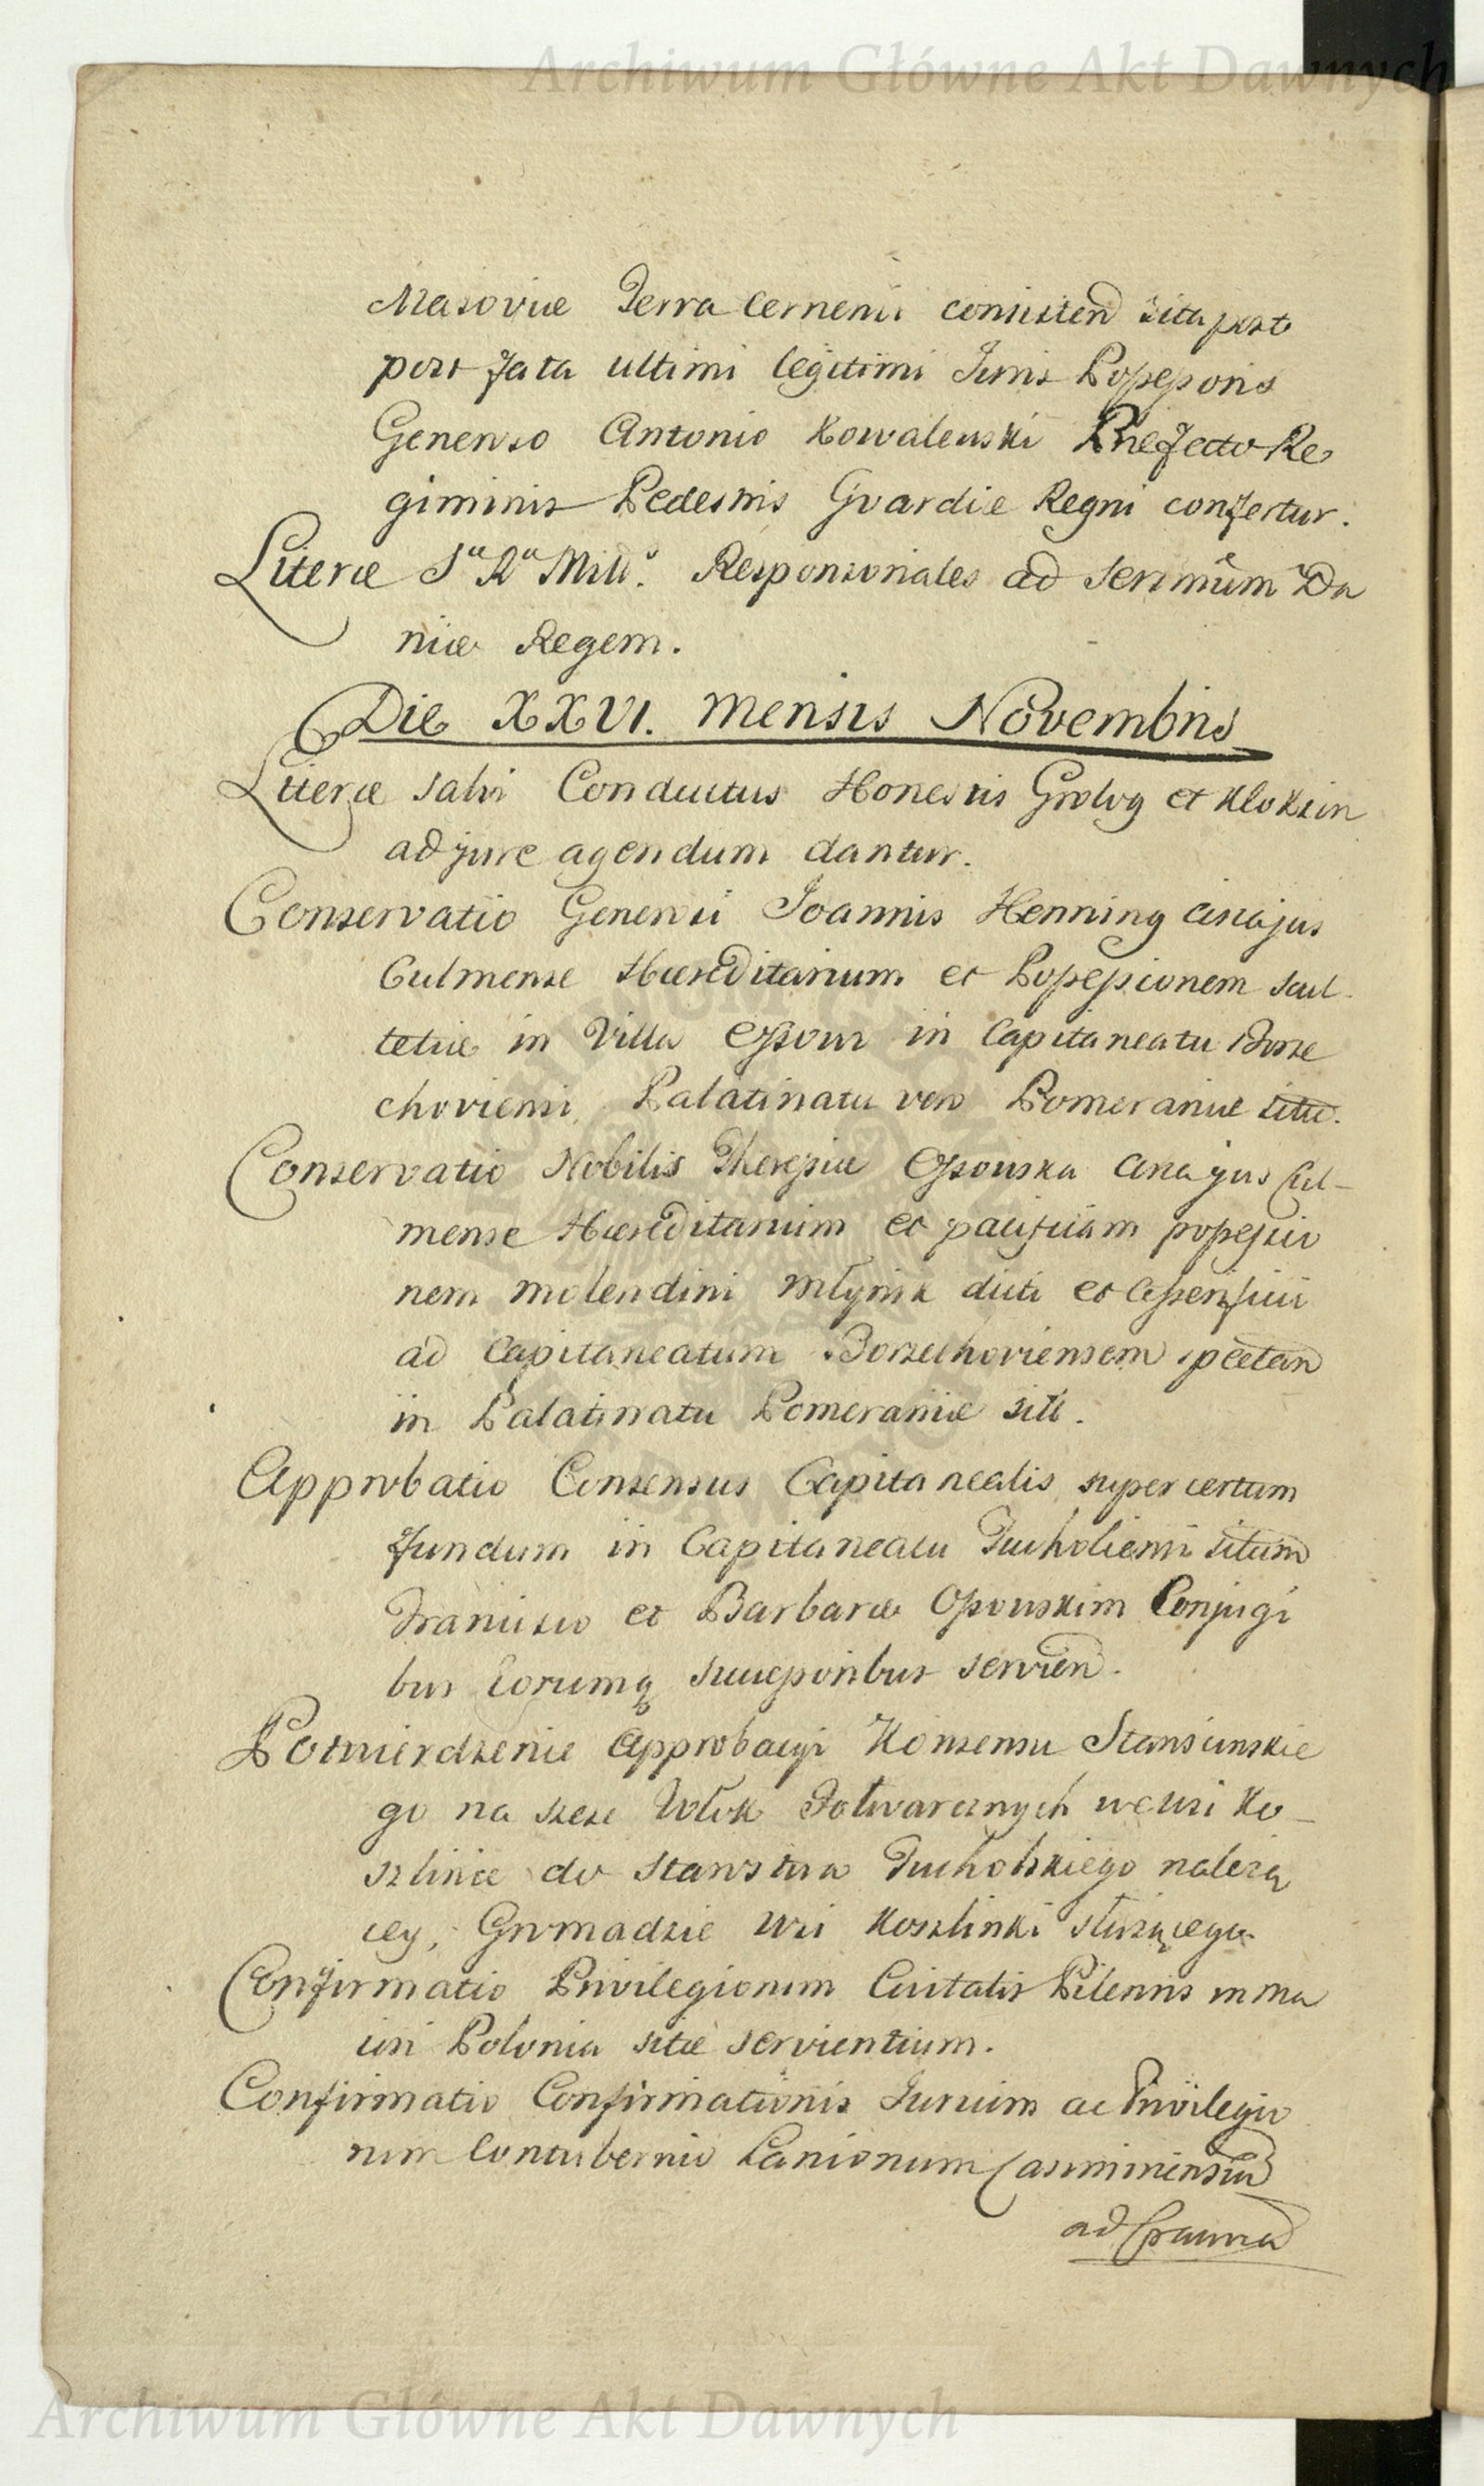 Archiwum Główne Akt Dawnych
Masoviæ Terra Cernensi consisten sita post
post fata ultimi legitimi Juris Possessoris
Generoso Antonio Kowalewski Præfecto Re
giminis Pedestris Gvardiæ Regni confertur.
Literæ Sᵃ Rᵃ Mttis. Responsoriales ad Serñmum Da
niæ Regem.
Die XXVI. Mensis Novembris
Literæ Salvi Conductus Honestis Grolvg et Klokzin
ad jure agendum dantur.
Conservatio Generosi Joannis Henning circa jus
Culmense Hæreditarium et Possessionem Scul-
tetiæ in Villa Ossowi in Capitaneatu Borze
choviensi Palatinatu vero Pomeraniæ sitæ.
Conservatio Nobilis Theressiæ Ossowska circa jus Cul-
mense Hæreditarium et pacificam possessio
nem molendini Młynik dicti et Assensicii
ad Capitaneatum Borzechoviensem spectan
in Palatinatu Pomeraniæ siti.
Approbatio Consensus Capitanealis super certum
fundum in Capitaneatu Tucholiensi situm
Francisco et Barbaræ Ossowskim Conjugi
bus Eorumq Successoribus servien.
Potwierdzenie Approbacyi Konsensu Starościnskie
go na sześć Włok Folwarcznych we wsi Ko-
szlince do Starostwa Tucholskiego należą
cey, Gromadzie Wsi Koszlinki służącego.
Confirmatio Privilegiorum Civitatis Pilensis in Ma
iori Polonia sitæ servientium.
Confirmatio Confirmationis Jurium ac Privilegio
rum Contubernio Lanionum Casimiriensiu
ad Cracovia
Archiwum Główne Akt Dawnych